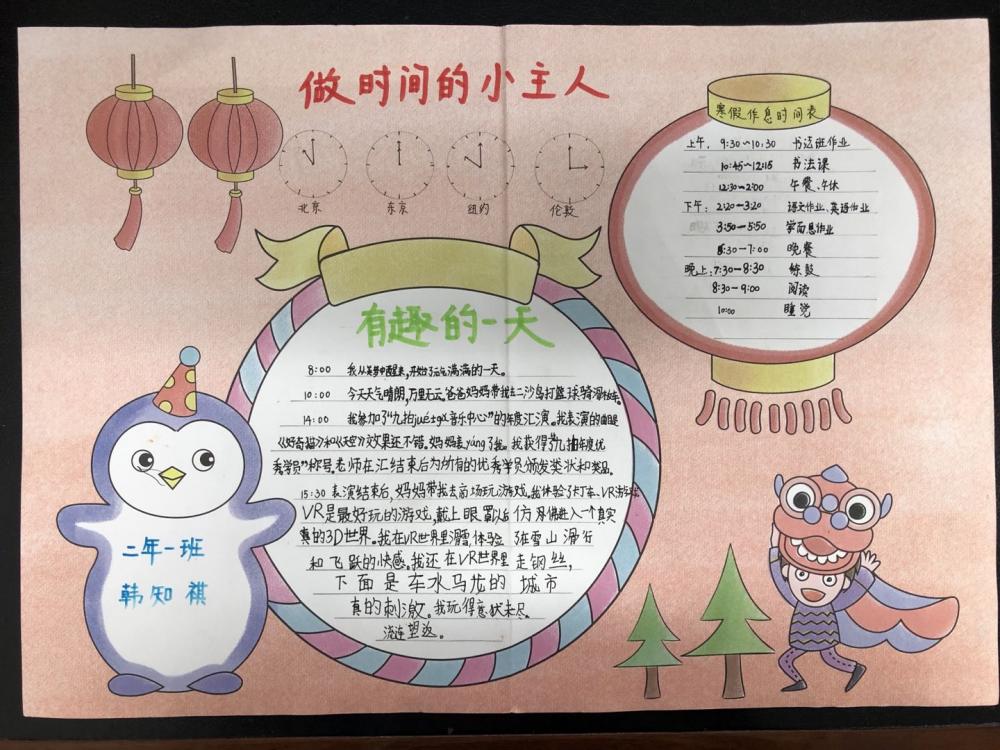 做时间的小主人
北京
东京
纽约
伦敦
寒假作息时间表
上午: 9:30~10:30 书法班作业
10:45~12:15 书法课
12:30~2:00 午餐、午休
下午: 2:20~3:20 语文作业、英语作业
3:50~5:50 学而思作业
6:30~7:00 晚餐
晚上: 7:30~8:30 练鼓
8:30~9:00 阅读
10:00 睡觉
有趣的一天
8:00 我从美梦中醒来,开始了元气满满的一天。
10:00 今天天气晴朗,万里无云。爸爸妈妈带我去二沙岛打篮球骑滑板车。
14:00 我参加了“九拍jué士gǔ音乐中心”的年度汇演。我表演的曲目
《好奇猫》和《天空》效果还不错。妈妈表yáng了我。我获得九拍年度优
秀学员”称号,老师在汇结束后为所有的优秀学员颁发奖状和奖品。
15:30 表演结束后,妈妈带我去商场玩游戏。我体验了卡丁车、VR游戏
VR是最好玩的游戏,戴上眼罩以后仿 佛进入一个真实
真的3D世界。我在VR世界里滑雪,体验 在雪山滑行
和飞跃的快感。我还在VR世界里 走钢丝,
下面是车水马龙的城市
真的刺激。我玩得意犹未尽
流连望返。
二年一班
韩知祺